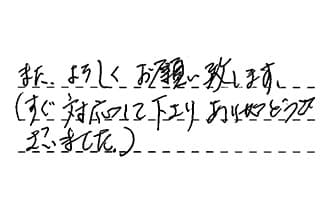 また、よろしくお願い致します。
(すぐ対応して下さりありがとうご
ざいました。)